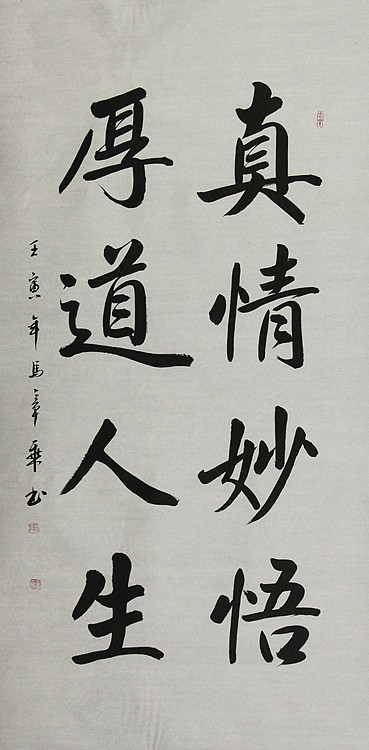 真情妙悟
厚道人生
壬寅年馬章乘书